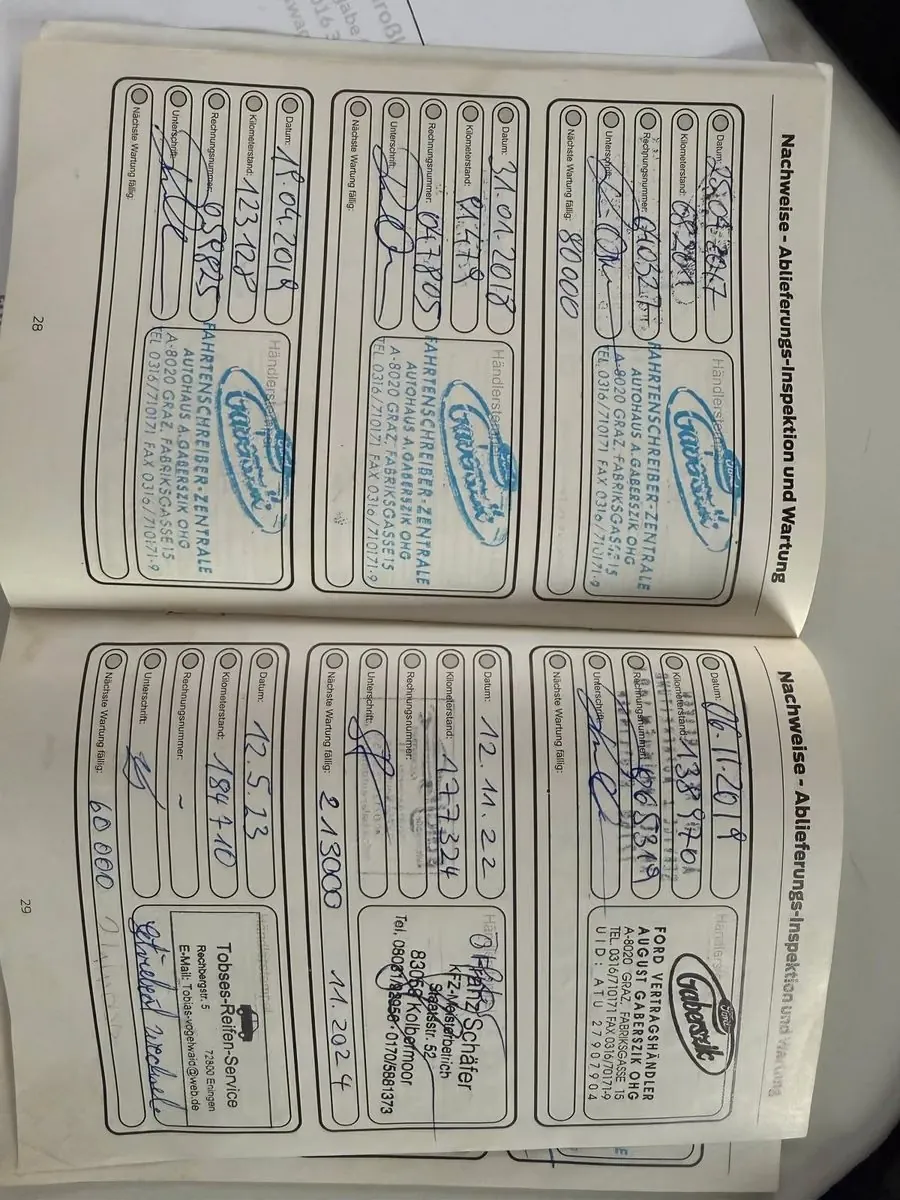 Nachweise - Ablieferungs-Inspektion und Wartung
Datum: 2017
Kilometerstand:
Rechnungsnummer: 040527
Unterschrift:
Nächste Wartung fällig: 80000
Händlerstempel
Ford
Gaberszik
FAHRTENSCHREIBER-ZENTRALE
AUTOHAUS A.GABERSZIK OHG
A-8020 GRAZ, FABRIKSGASSE 15
TEL 0316/710171 FAX 0316/710171-9
Datum: 31.01.2018
Kilometerstand: 91.479
Rechnungsnummer: 047805
Unterschrift:
Nächste Wartung fällig:
Händlerstempel
Ford
Gaberszik
FAHRTENSCHREIBER-ZENTRALE
AUTOHAUS A.GABERSZIK OHG
A-8020 GRAZ, FABRIKSGASSE 15
TEL 0316/710171 FAX 0316/710171-9
Datum: 18.04.2019
Kilometerstand: 123128
Rechnungsnummer: 059825
Unterschrift:
Nächste Wartung fällig:
Händlerstempel
Ford
Gaberszik
FAHRTENSCHREIBER-ZENTRALE
AUTOHAUS A.GABERSZIK OHG
A-8020 GRAZ, FABRIKSGASSE 15
TEL 0316/710171 FAX 0316/710171-9
28
Nachweise - Ablieferungs-Inspektion und Wartung
Datum: 06.11.2019
Kilometerstand: 138970
Rechnungsnummer: 065319
Unterschrift:
Nächste Wartung fällig:
Ford
Gaberszik
FORD VERTRAGSHÄNDLER
AUGUST GABERSZIK OHG
A-8020 GRAZ, FABRIKSGASSE 15
TEL. 0316/710171 FAX 0316/710171-9
UID: ATU 27907904
Datum: 12.11.22
Kilometerstand: 177324
Rechnungsnummer:
Unterschrift:
Nächste Wartung fällig: 213000 11.2024
Franz Schäfer
KFZ-Meisterbetrieb
Staatsstr. 52
83059 Kolbermoor
Tel. 08031/92956 · 0170/5881373
Datum: 12.5.23
Kilometerstand: 184710
Rechnungsnummer: ~
Unterschrift:
Nächste Wartung fällig: 60000
Händlerstempel
Tobses-Reifen-Service
Rechbergstr. 5 72800 Eningen
E-Mail: Tobias-vogelwaid@web.de
29